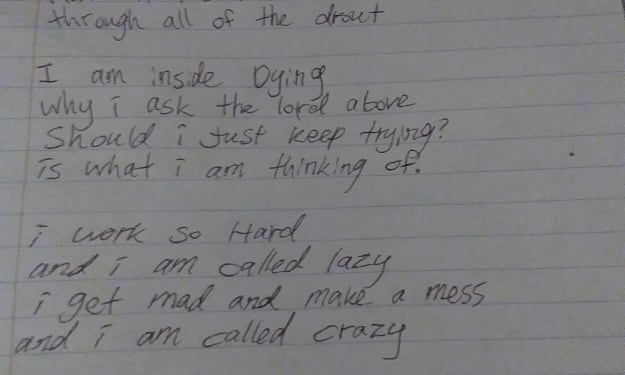 through all of the drout
I am inside Dying
why i ask the lord above
Should i Just keep trying?
is what i am thinking of.
i work so Hard
and i am called lazy
i get mad and make a mess
and i am called crazy